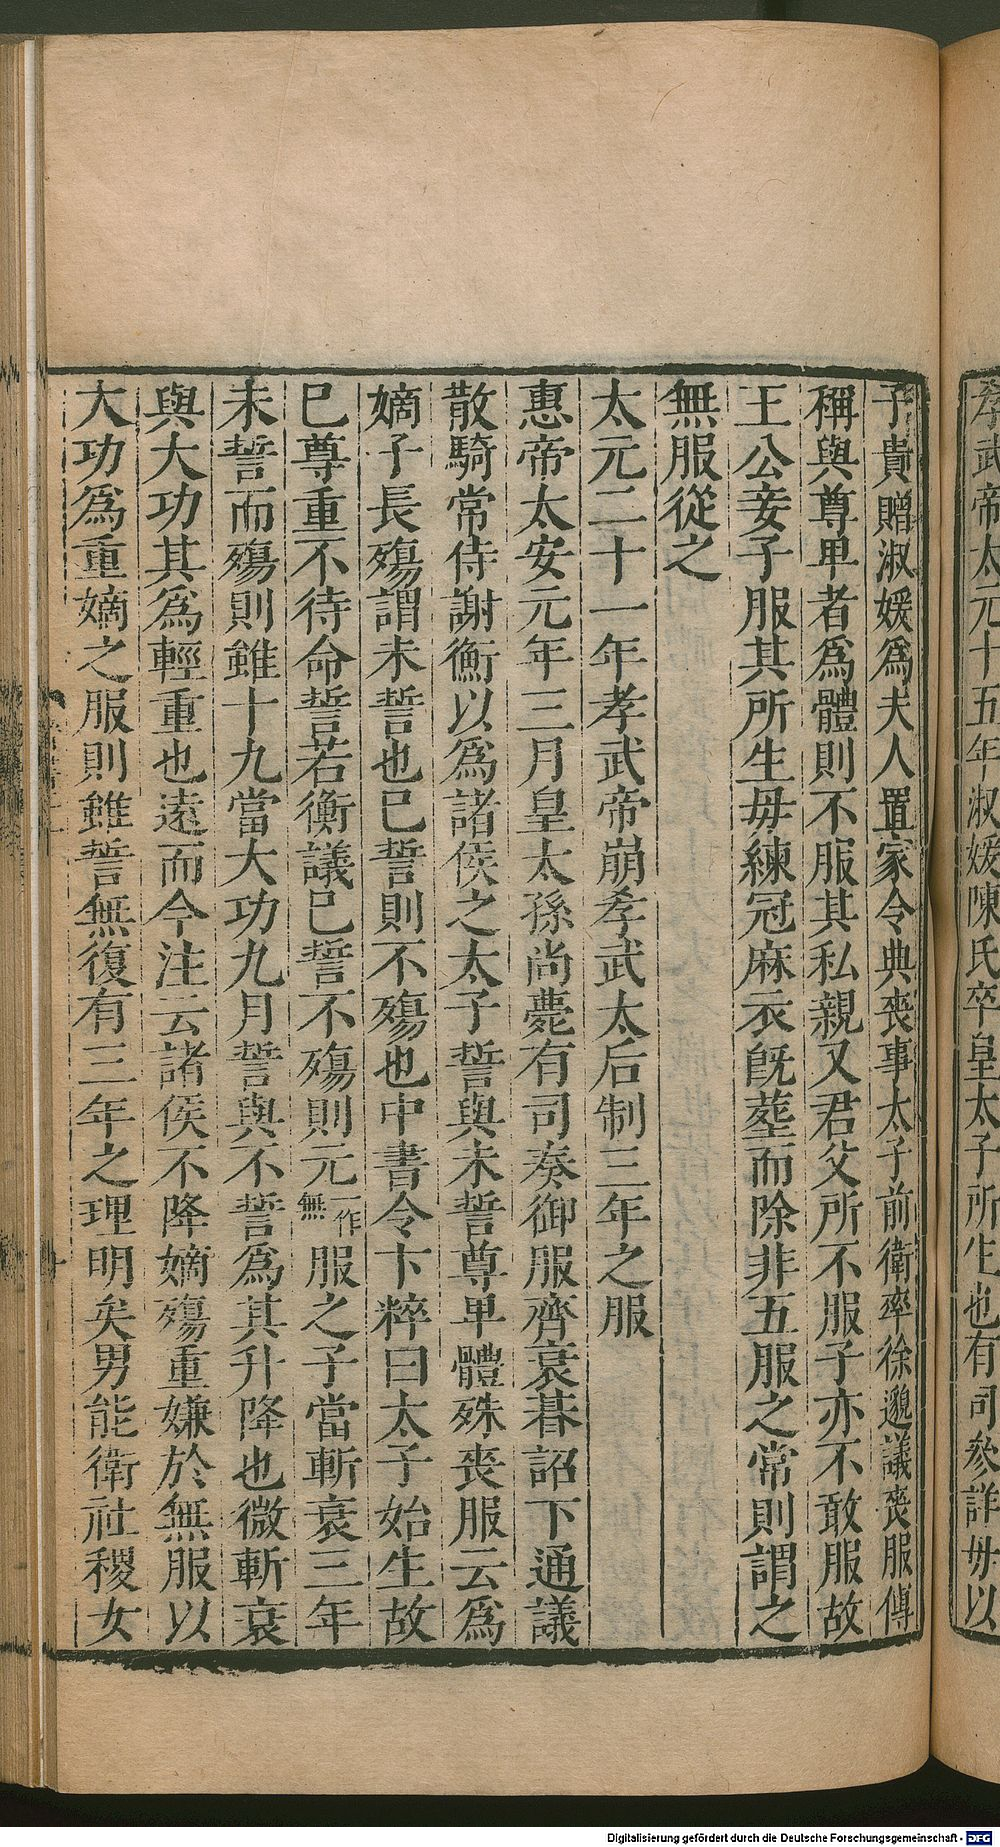 孝武帝太元十五年淑媛陳氏卒皇太子所生也有司參詳母以
子貴贈淑媛爲夫人置家令典喪事太子前衛率徐邈議喪服傳
稱與尊者爲體則不服其私親又君父所不服子亦不敢服故
王公妾子服其所生母練冠麻衣旣葬而除非五服之常則謂之
無服從之
太元二十一年孝武帝崩孝武太后制三年之服
惠帝太安元年三月皇太孫尚薨有司奏御服齊衰朞詔下通議
散騎常侍謝衡以爲諸侯之太子誓與未誓尊卑體殊喪服云爲
嫡子長殤謂未誓也已誓則不殤也中書令卞粹曰太子始生故
已尊重不待命誓若衡議已誓不殤則元一作無服之子當斬衰三年
未誓而殤則雖十九當大功九月誓與不誓爲其升降也微斬衰
與大功其爲輕重也遠而今注云諸侯不降嫡殤重嫌於無服以
大功爲重嫡之服則雖誓無復有三年之理明矣男能衛社稷女
Digitalisierung gefördert durch die Deutsche Forschungsgemeinschaft - DFG